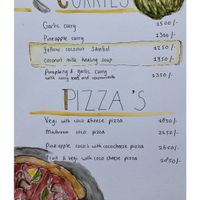 CURRIES
Garlic curry 1500/-
Pineapple curry 1300/-
Yellow coconut Sambol 1250/-
Coconut milk healing soup 1350/-
Pumpkin & garlic curry 1350/-
with curry leaf and
PIZZA'S
Vegi with coco cheese pizza 1850/-
Mushroom coco pizza 2250/-
Pine apple coco's with coco cheese pizza 2600/-
Fruit & vegi with coco cheese pizza 2050/-